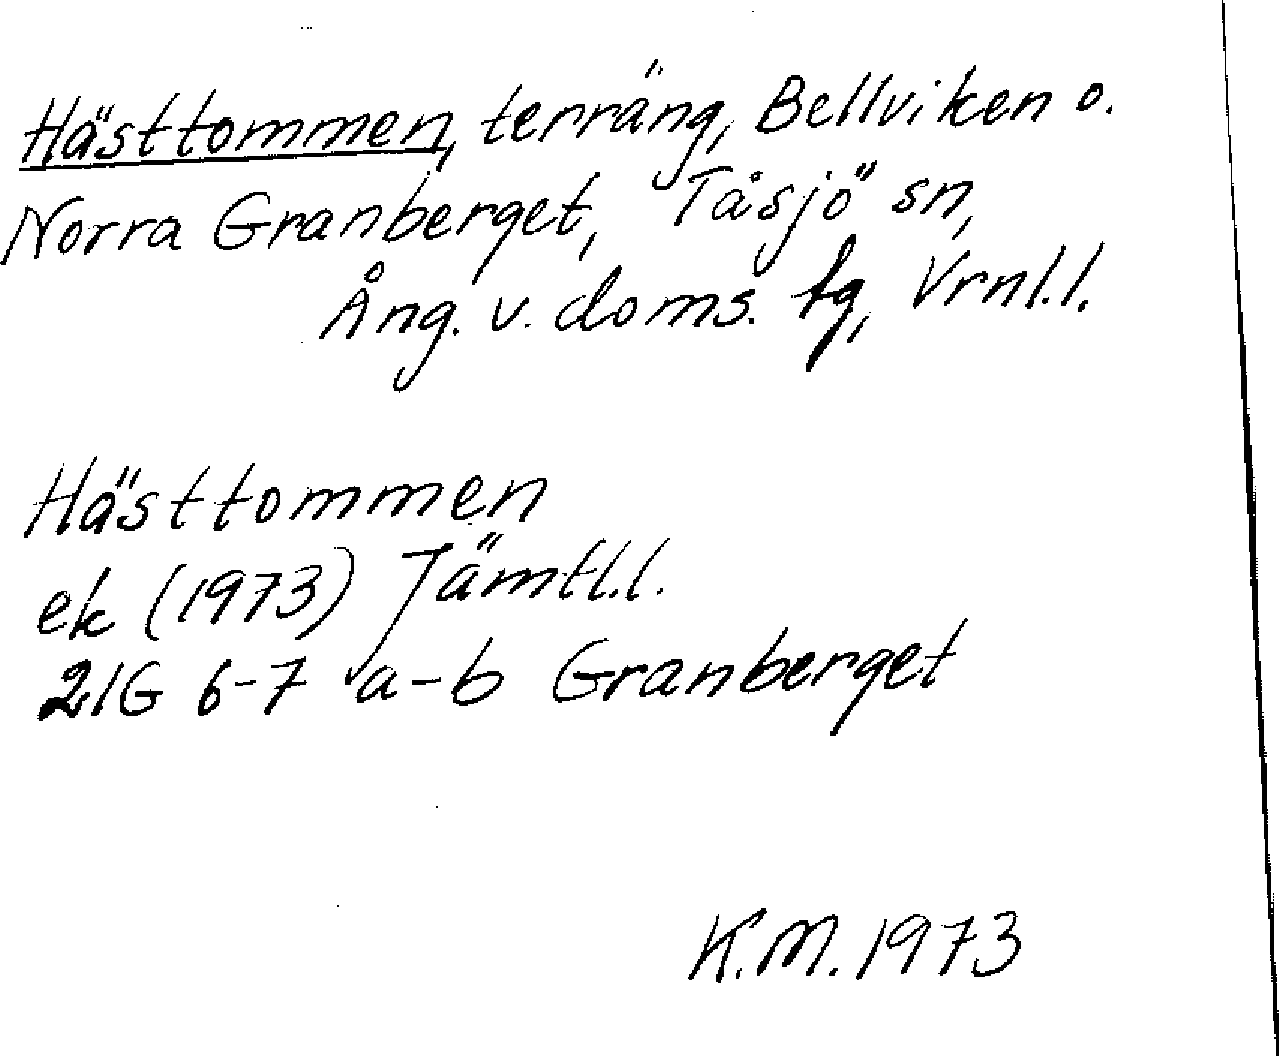 Hästtommen, terräng, Bellviken o.
Norra Granberget, Tåsjö sn,
Ång. v. doms. tg, Vrnl.l.
Hästtommen
ek (1973) Jämtl.l.
21G 6-7 a-b Granberget
K.M. 1973